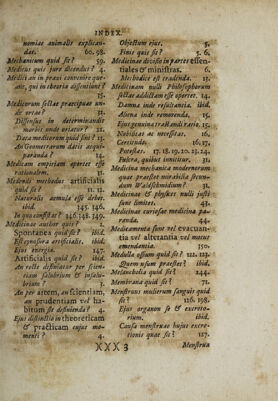 INDEX.
nomiae animalis explicandae. 60. 98.
Mechanicum quid sit? 59.
Medicus quis jure dicendus? 4.
Medici an in praxi convenire queant, qui in theoria dissentiunt? 15.
Medicorum sectae praecipuae unde ortae? 31.
Dissensus in determinandis morbis unde oriatur? 21.
Datae medicorum quid sint? 13.
An Geometrarum datis aequiparanda? 14.
Medicum empiricum oportet esse rationalem. 31.
Medendi methodus artificialis quid sit? 11. 12.
Naturalis aemula esse debet. ibid. 145. 146.
In qua consistat? 146. 148. 149.
Medicinae author quis? 2.
Spontanea quid sit? ibid.
Est censura artificialis. ibid.
Ejus energia. 147.
Artificialis quid sit? ibid.
An recte definiatur per scientiam salubrium & insalubrium? 3.
An per artem, an scientiam, an prudentiam vel habitum sit definienda? 4.
Ejus distinctio in theoreticam & practicam cujus momenti? 4.
Objectum ejus. 5.
Finis quis sit? 5. 6.
Medicinae divisio in partes essentiales & ministras. 6.
Methodice est tradenda. 13.
Medicinam nulli Philosophorum sectae addictam esse oportet. 14.
Damna inde resultantia. ibid.
Aliena inde removenda. 15.
Ejus genuina tradendi ratio. 15.
Nobilitas ac necessitas. 16.
Certitudo. 16. 17.
Potestas. 17. 18. 19. 20. 23. 24.
Fulcra, quibus innititur. 31.
Medicina mechanica modernorum quae praestet mirabilia secundum Waldschmidium? 59.
Medicinae & physicae nulli justi sunt limites. 43.
Medicinae curiosae medicina paranda. 44.
Medicamenta sunt vel evacuantia vel alterantia vel motus emendantia. 350.
Medulla ossium quid sit? 122. 123.
Quem usum praestet? ibid.
Melancholia quid sit? 244.
Menses quid sit? 71.
Menstruus mulierum sanguis quid sit? 116. 198.
Ejus organon se & excretorium. ibid.
Causa menstruae hujus excretionis quae sit? 127.
XXX 3 Menstrua